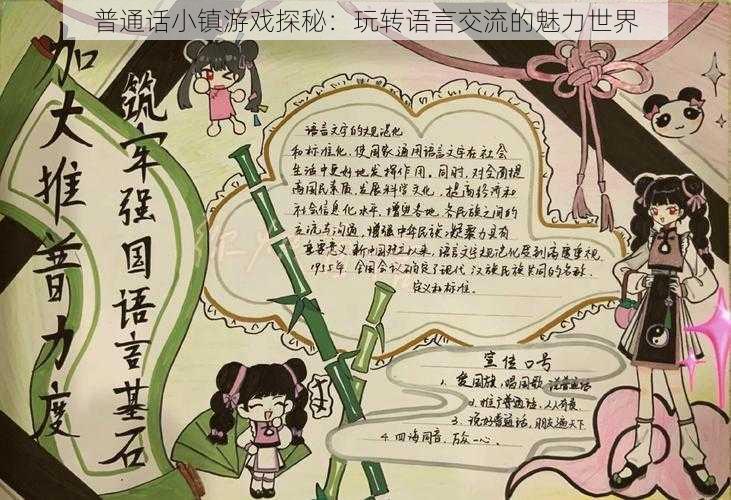 普通话小镇游戏探秘：玩转语言交流的魅力世界
加大推普力度
筑牢强国语言基石
语言文字的规范化
和标准化，使国家通用语言文字在社会
生活中更好地发挥作用，同时，对全面提
高国民素质，发展科学文化，提高经济和
社会信息化水平，增进各地、各民族之间的
交流与沟通，增强中华民族凝聚力具有
重要意义，新中国建立以来，语言文字规范化受到高度重视，
1955年，全国会议确定了现代汉族民族共同的名称、
定义和标准。
宣传口号
1、爱国旗，唱国歌，说普通话
2、推广普通话，人人有责
3、说好普通话，朋友遍天下
4、四海同音，万众一心。